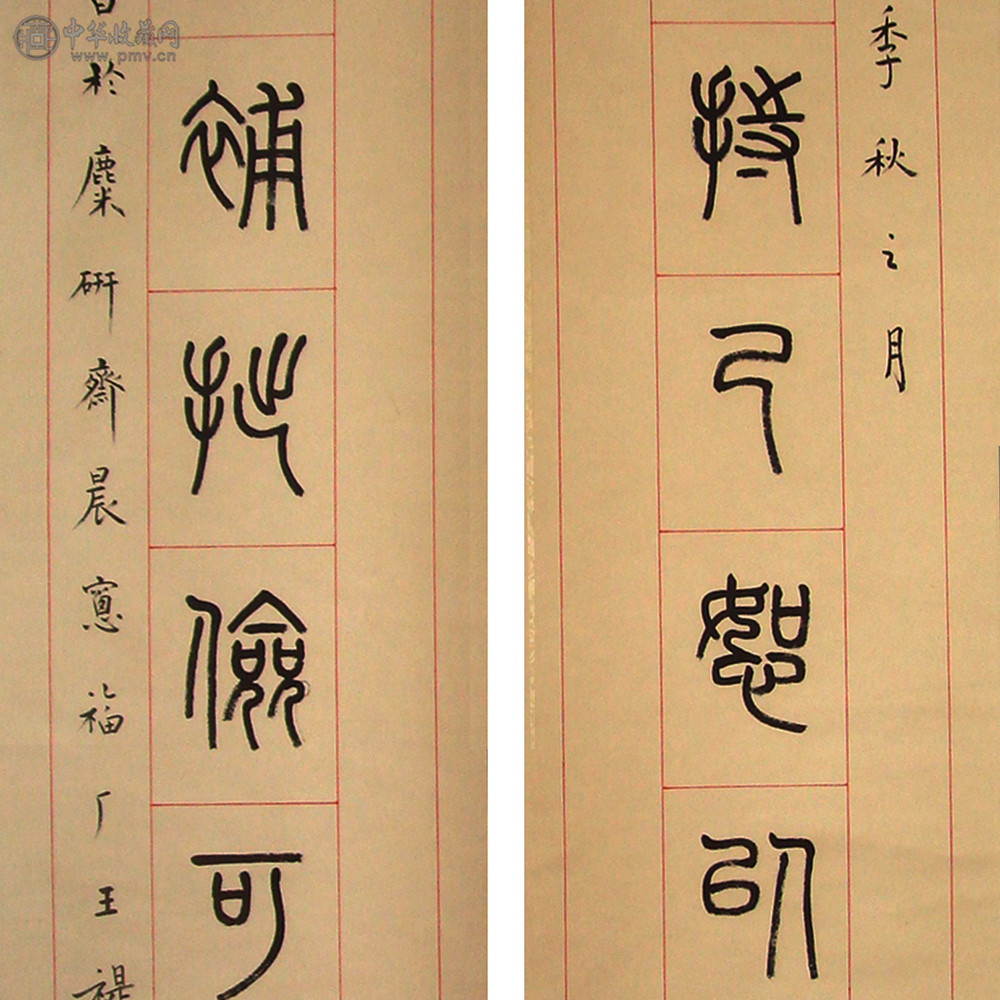 季秋之月
持己恕以
補拙儉可
於麋研齋晨窻福厂王禔
中华收藏网
www.pmv.cn